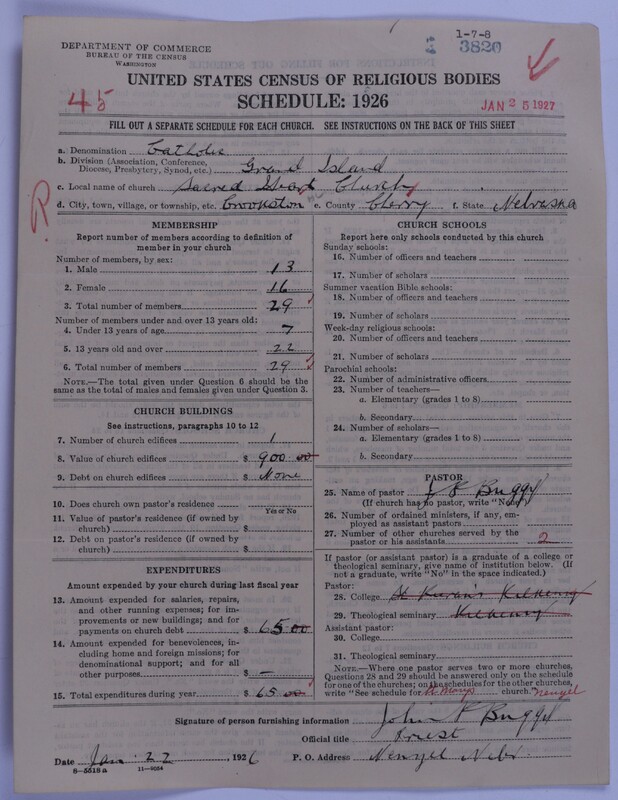 1-7-8
3820
DEPARTMENT OF COMMERCE
BUREAU OF THE CENSUS
WASHINGTON
UNITED STATES CENSUS OF RELIGIOUS BODIES
SCHEDULE: 1926
45
JAN 25 1927
FILL OUT A SEPARATE SCHEDULE FOR EACH CHURCH. SEE INSTRUCTIONS ON THE BACK OF THIS SHEET
a. Denomination Catholic
b. Division (Association, Conference, Diocese, Presbytery, Synod, etc.) Grand Island
c. Local name of church Sacred Heart Church
d. City, town, village, or township, etc. Crookston e. County Cherry f. State Nebraska
R
MEMBERSHIP
Report number of members according to definition of
member in your church
Number of members, by sex:
1. Male 13
2. Female 16
3. Total number of members 29
Number of members under and over 13 years old:
4. Under 13 years of age 7
5. 13 years old and over 22
6. Total number of members 29
NOTE.—The total given under Question 6 should be the
same as the total of males and females given under Question 3.
CHURCH BUILDINGS
See instructions, paragraphs 10 to 12
7. Number of church edifices 1
8. Value of church edifices $ 900 00
9. Debt on church edifices $ None
10. Does church own pastor's residence
Yes or No
11. Value of pastor's residence (if owned by
church) $
12. Debt on pastor's residence (if owned by
church) $
EXPENDITURES
Amount expended by your church during last fiscal year
13. Amount expended for salaries, repairs,
and other running expenses; for im-
provements or new buildings; and for
payments on church debt $ 65 00
14. Amount expended for benevolences, in-
cluding home and foreign missions; for
denominational support; and for all
other purposes $ —
15. Total expenditures during year $ 65 00
CHURCH SCHOOLS
Report here only schools conducted by this church
Sunday schools:
16. Number of officers and teachers
17. Number of scholars
Summer vacation Bible schools:
18. Number of officers and teachers
19. Number of scholars
Week-day religious schools:
20. Number of officers and teachers
21. Number of scholars
Parochial schools:
22. Number of administrative officers
23. Number of teachers—
a. Elementary (grades 1 to 8)
b. Secondary
24. Number of scholars—
a. Elementary (grades 1 to 8)
b. Secondary
PASTOR
25. Name of pastor J P Buggy
(If church has no pastor, write "None")
26. Number of ordained ministers, if any, em-
ployed as assistant pastors
27. Number of other churches served by the
pastor or his assistants 2
If pastor (or assistant pastor) is a graduate of a college or
theological seminary, give name of institution below. (If
not a graduate, write "No" in the space indicated.)
Pastor:
28. College St Kieran's Kilkenny
29. Theological seminary Kilkenny
Assistant pastor:
30. College
31. Theological seminary
NOTE.—Where one pastor serves two or more churches,
Questions 28 and 29 should be answered only on the schedule
for one of the churches; on the schedules for the other churches,
write "See schedule for St Marys church." nenzel
Signature of person furnishing information John P Buggy
Official title Priest
Date Jan 22, 1926 P. O. Address Nenzel Nebr
8-5518a 11-9054